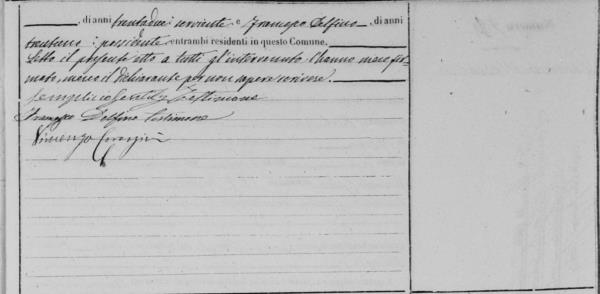 , di anni trentadue serviente e Francesco Delfino , di anni
trentuno : possidente entrambi residenti in questo Comune.
Letto il presente atto a tutti gl'intervenuti l'hanno meco fir-
mato, meno il dichiarante per non sapere scrivere.
Semplicio Gentile testimone
Francesco Delfino testimone
Vincenzo